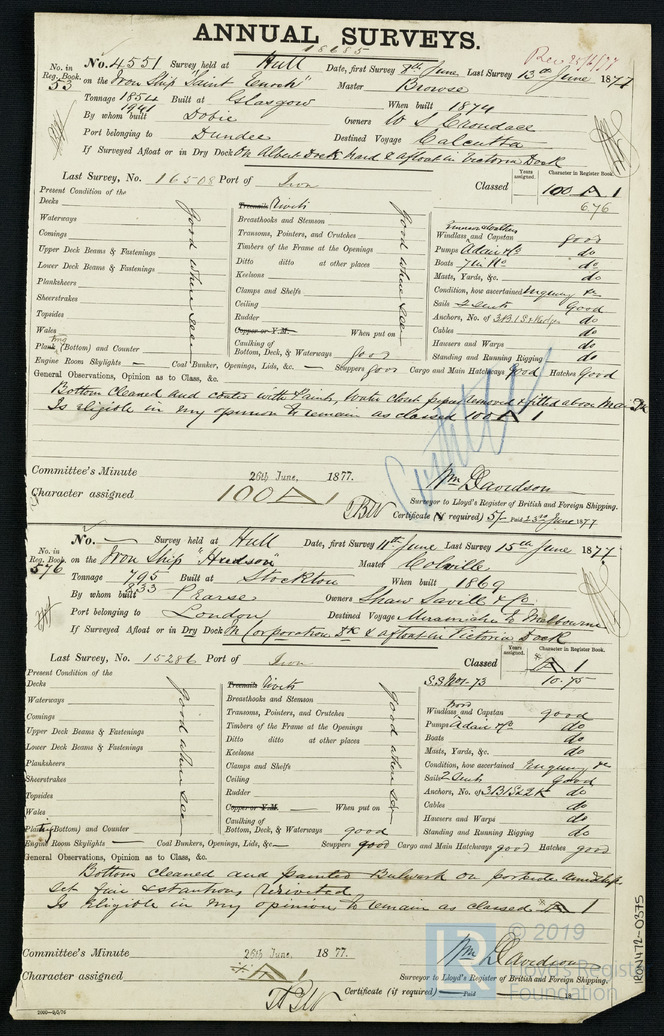 ANNUAL SURVEYS.
18685
No. in Reg. Book. 53
No. 4551 Survey held at Hull Date, first Survey 8th June Last Survey 13th June 1877
on the Iron Ship "Saint Enoch" Master Browse
Tonnage 1854 1941 Built at Glasgow When built 1874
By whom built Dobie Owners W S Croudace
Port belonging to Dundee Destined Voyage Calcutta
If Surveyed Afloat or in Dry Dock In Albert Dock Hard & afloat in Victoria Dock
Last Survey, No. 16508 Port of Iron Classed Years assigned. Character in Register Book. 100 A 1
6.76
Present Condition of the
Decks
Waterways
Comings
Upper Deck Beams & Fastenings
Lower Deck Beams & Fastenings
Planksheers
Sheerstrakes
Topsides
Wales
Plank (Bottom) and Counter
good where seen
Treenails Rivets
Breasthooks and Stemson
Transoms, Pointers, and Crutches
Timbers of the Frame at the Openings
Ditto ditto at other places
Keelsons
Clamps and Shelfs
Ceiling
Rudder
Copper or Y.M. When put on
Caulking of Bottom, Deck, & Waterways good
good where seen
Windlass and Capstan good
Pumps Adair Ho do
Boats do
Masts, Yards, &c. do
Condition, how ascertained Enquiry &c
Sails 2 Suits Good
Anchors, No. of 3B 1S do
Cables do
Hawsers and Warps do
Standing and Running Rigging do
Engine Room Skylights — Coal Bunker, Openings, Lids, &c. — Scuppers good Cargo and Main Hatchways Good Hatches Good
General Observations, Opinion as to Class, &c.
Bottom Cleaned and coated with Paints, Water closet pipes removed & fitted above Main Dk
Is eligible in my opinion to remain as classed 100 A 1
Committee's Minute 26th June, 1877.
Character assigned 100 A 1
Wm Davidson
Surveyor to Lloyd's Register of British and Foreign Shipping.
Certificate (if required) 5/- Paid 23rd June 1877
No. in Reg. Book. 576
No. — Survey held at Hull Date, first Survey 11th June Last Survey 15th June 1877
on the Iron Ship "Hudson" Master Colville
Tonnage 795 833 Built at Stockton When built 1869
By whom built Pearse Owners Shaw Savill & Co
Port belonging to London Destined Voyage Miramichi & Melbourne
If Surveyed Afloat or in Dry Dock In Corporation Dk & afloat in Victoria Dock
Last Survey, No. 15286 Port of Iron Classed Years assigned. Character in Register Book. A 1
10.75
Present Condition of the
Decks
Waterways
Comings
Upper Deck Beams & Fastenings
Lower Deck Beams & Fastenings
Planksheers
Sheerstrakes
Topsides
Wales
Plating (Bottom) and Counter
good where seen
Treenails Rivets
Breasthooks and Stemson
Transoms, Pointers, and Crutches
Timbers of the Frame at the Openings
Ditto ditto at other places
Keelsons
Clamps and Shelfs
Ceiling
Rudder
Copper or Y.M. When put on
Caulking of Bottom, Deck, & Waterways good
good where seen
Windlass and Capstan good
Pumps Adair Ho do
Boats do
Masts, Yards, &c. do
Condition, how ascertained Enquiry &c
Sails 2 Suits Good
Anchors, No. of 3B 1S 2K do
Cables do
Hawsers and Warps do
Standing and Running Rigging do
Engine Room Skylights — Coal Bunkers, Openings, Lids, &c — Scuppers good Cargo and Main Hatchways good Hatches good
General Observations, Opinion as to Class, &c.
Bottom cleaned and painted Bulwark on portside amidships
set fair & stanchions reriveted
Is eligible in my opinion to remain as classed A 1
Committee's Minute 26th June, 1877.
Character assigned A 1
Wm Davidson
Surveyor to Lloyd's Register of British and Foreign Shipping.
Certificate (if required) Paid 18
2000—9/2/76
IRON472-0375
LR © 2019
Lloyd's Register
Foundation